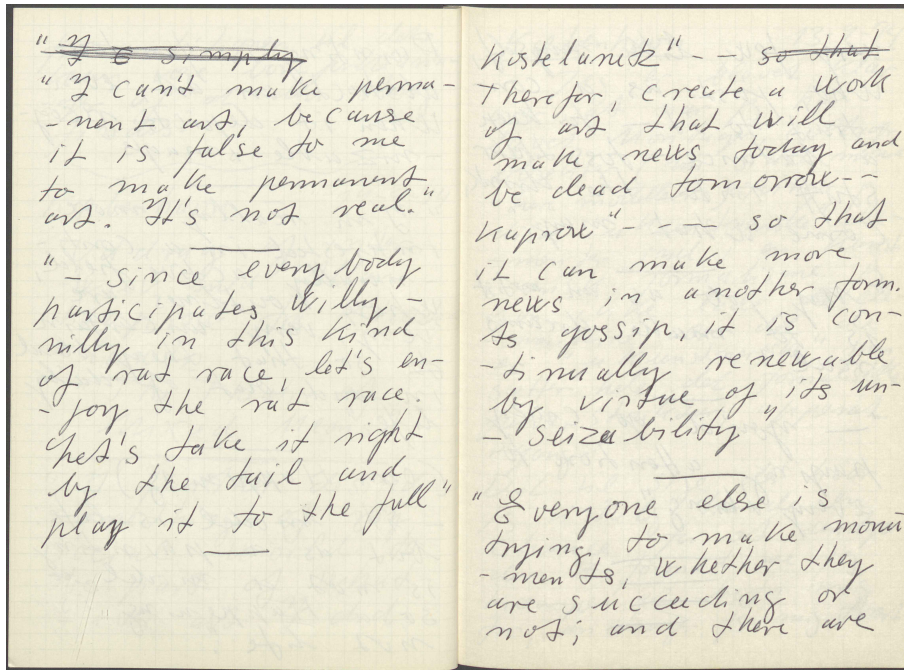 " I simply
" I can't make perma-
-nent art, because
it is false to me
to make permanent
art. It's not real."
"– since everybody
participates willy-
nilly in this kind
of rat race, let's en-
-joy the rat race.
Let's take it right
by the tail and
play it to the full"
Kostelanetz" -- so that
Therefor, create a work
of art that will
make news today and
be dead tomorrow--
Kaprow" --- so that
it can make more
news in another form.
As gossip, it is con-
-tinually renewable
by virtue of its un-
- seizability"
"Everyone else is
trying to make monu
-ments, whether they
are succeeding or
not; and there are